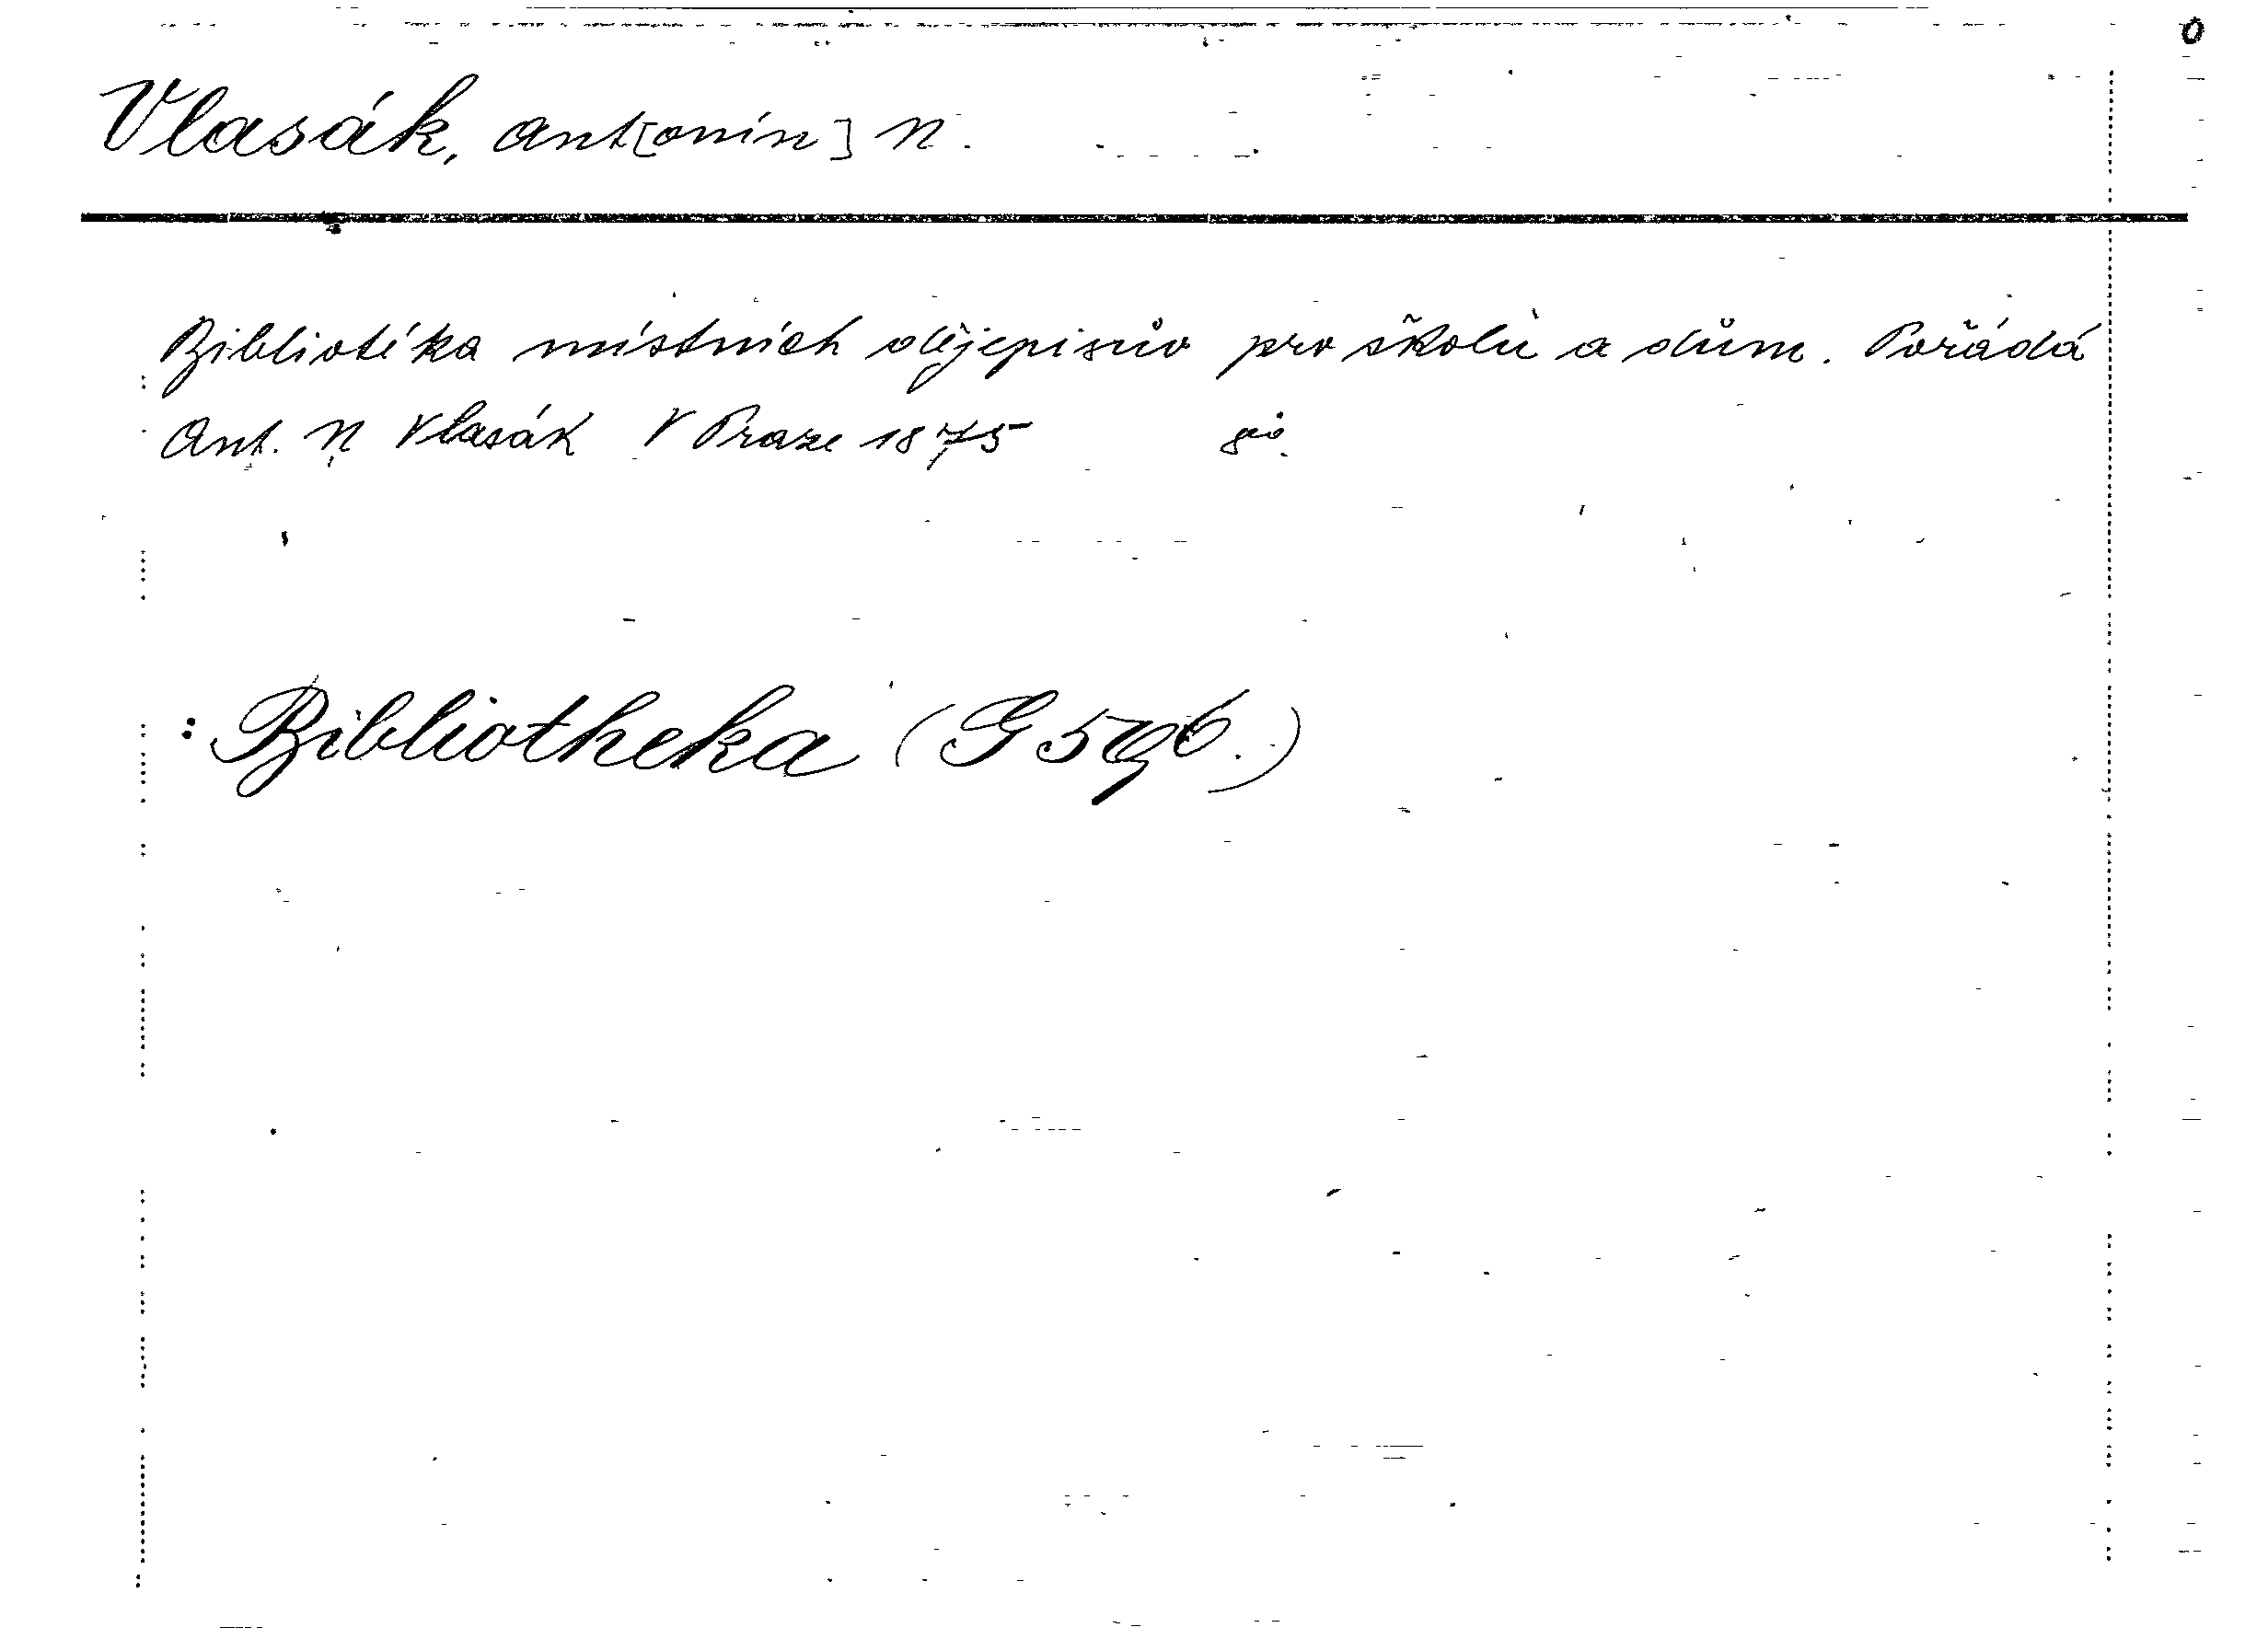 Vlasák, Ant[onín] N.
Bibliotéka místních dějepisův pro školu a dům. Pořádá
Ant. N Vlasák V Praze 1875 8º.
: Bibliotheka (G 596.)